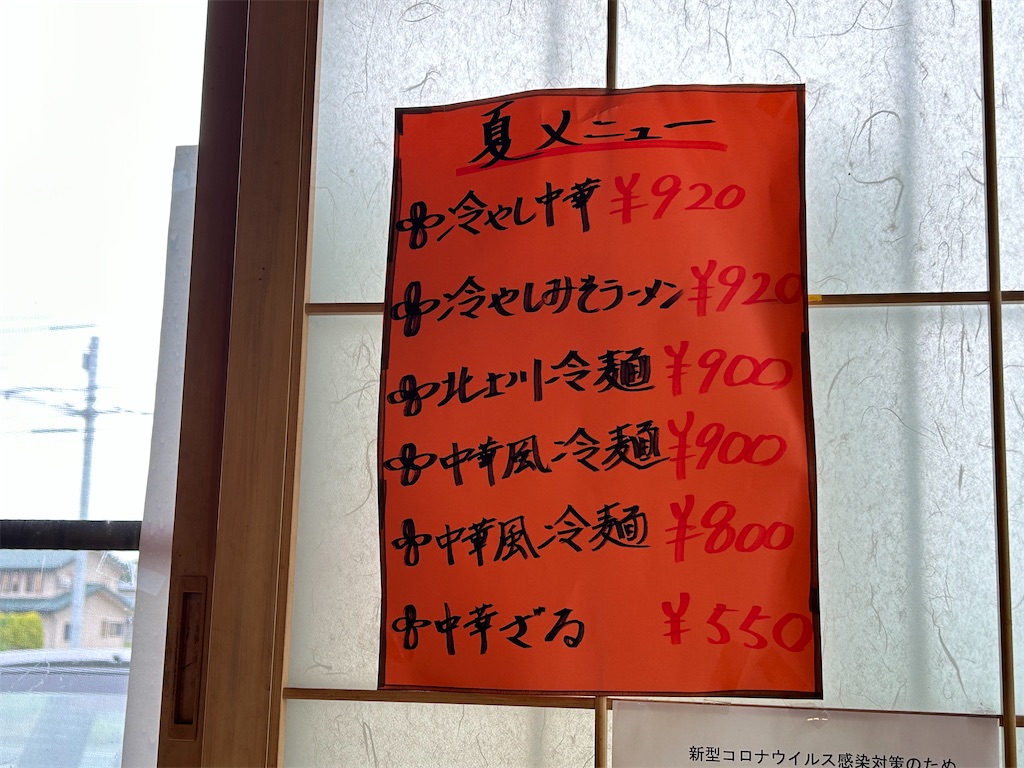 夏メニュー
冷やし中華 ¥920
冷やしみそラーメン ¥920
北上川冷麺 ¥900
中華風冷麺 ¥900
中華風冷麺 ¥800
中華ざる ¥550
新型コロナウイルス感染対策のため